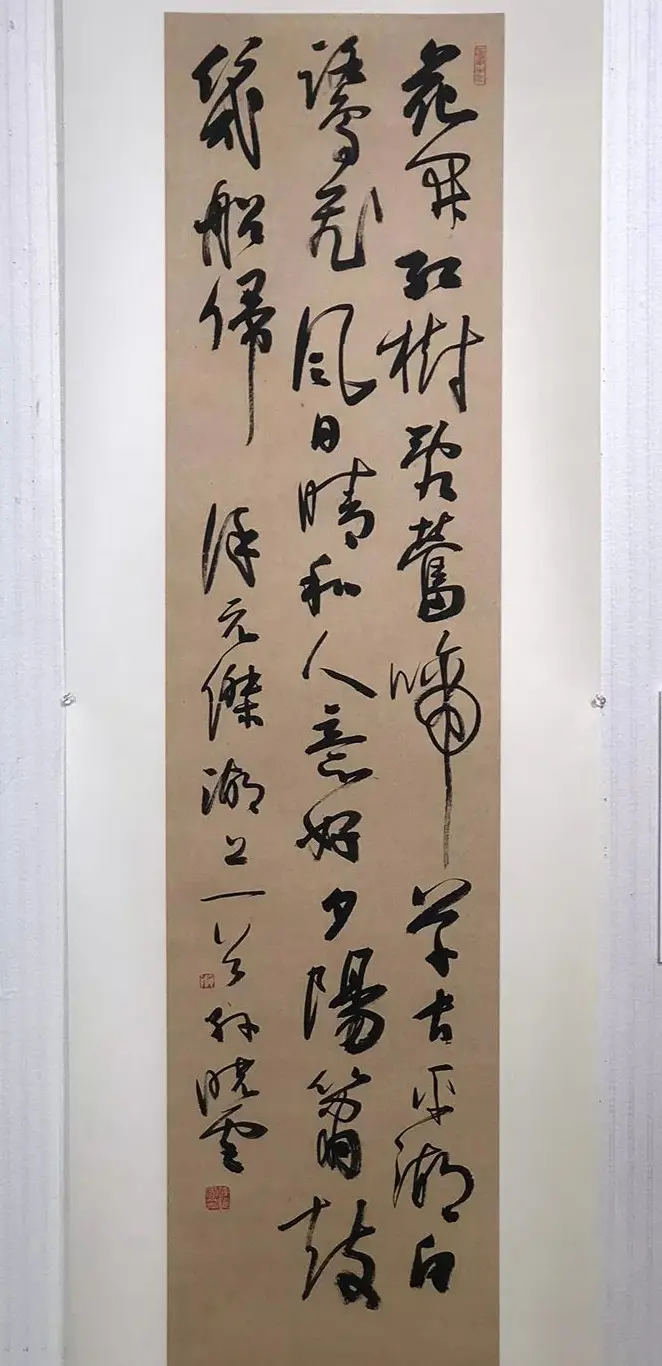 花開紅樹亂鶯啼草長平湖白
鷺飛風日晴和人意好夕陽簫鼓
幾船歸 徐元傑湖上一首 孫曉雲